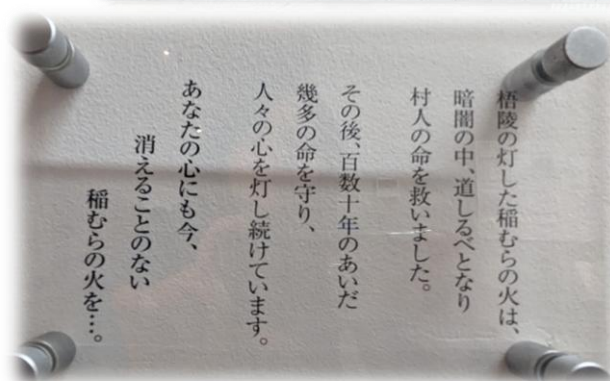 梧陵の灯した稲むらの火は、
暗闇の中、道しるべとなり
村人の命を救いました。
その後、百数十年のあいだ
幾多の命を守り、
人々の心を灯し続けています。
あなたの心にも今、
消えることのない
稲むらの火を…。